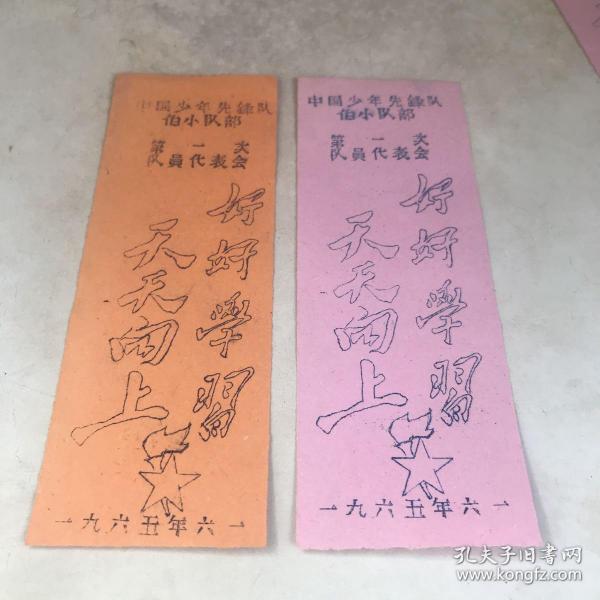 中國少年先鋒队
伯小队部
第一次
队員代表会
好好學習
天天向上
一九六五年六一
中國少年先鋒队
伯小队部
第一次
队員代表会
好好學習
天天向上
一九六五年六一
孔夫子旧书网
www.kongfz.com